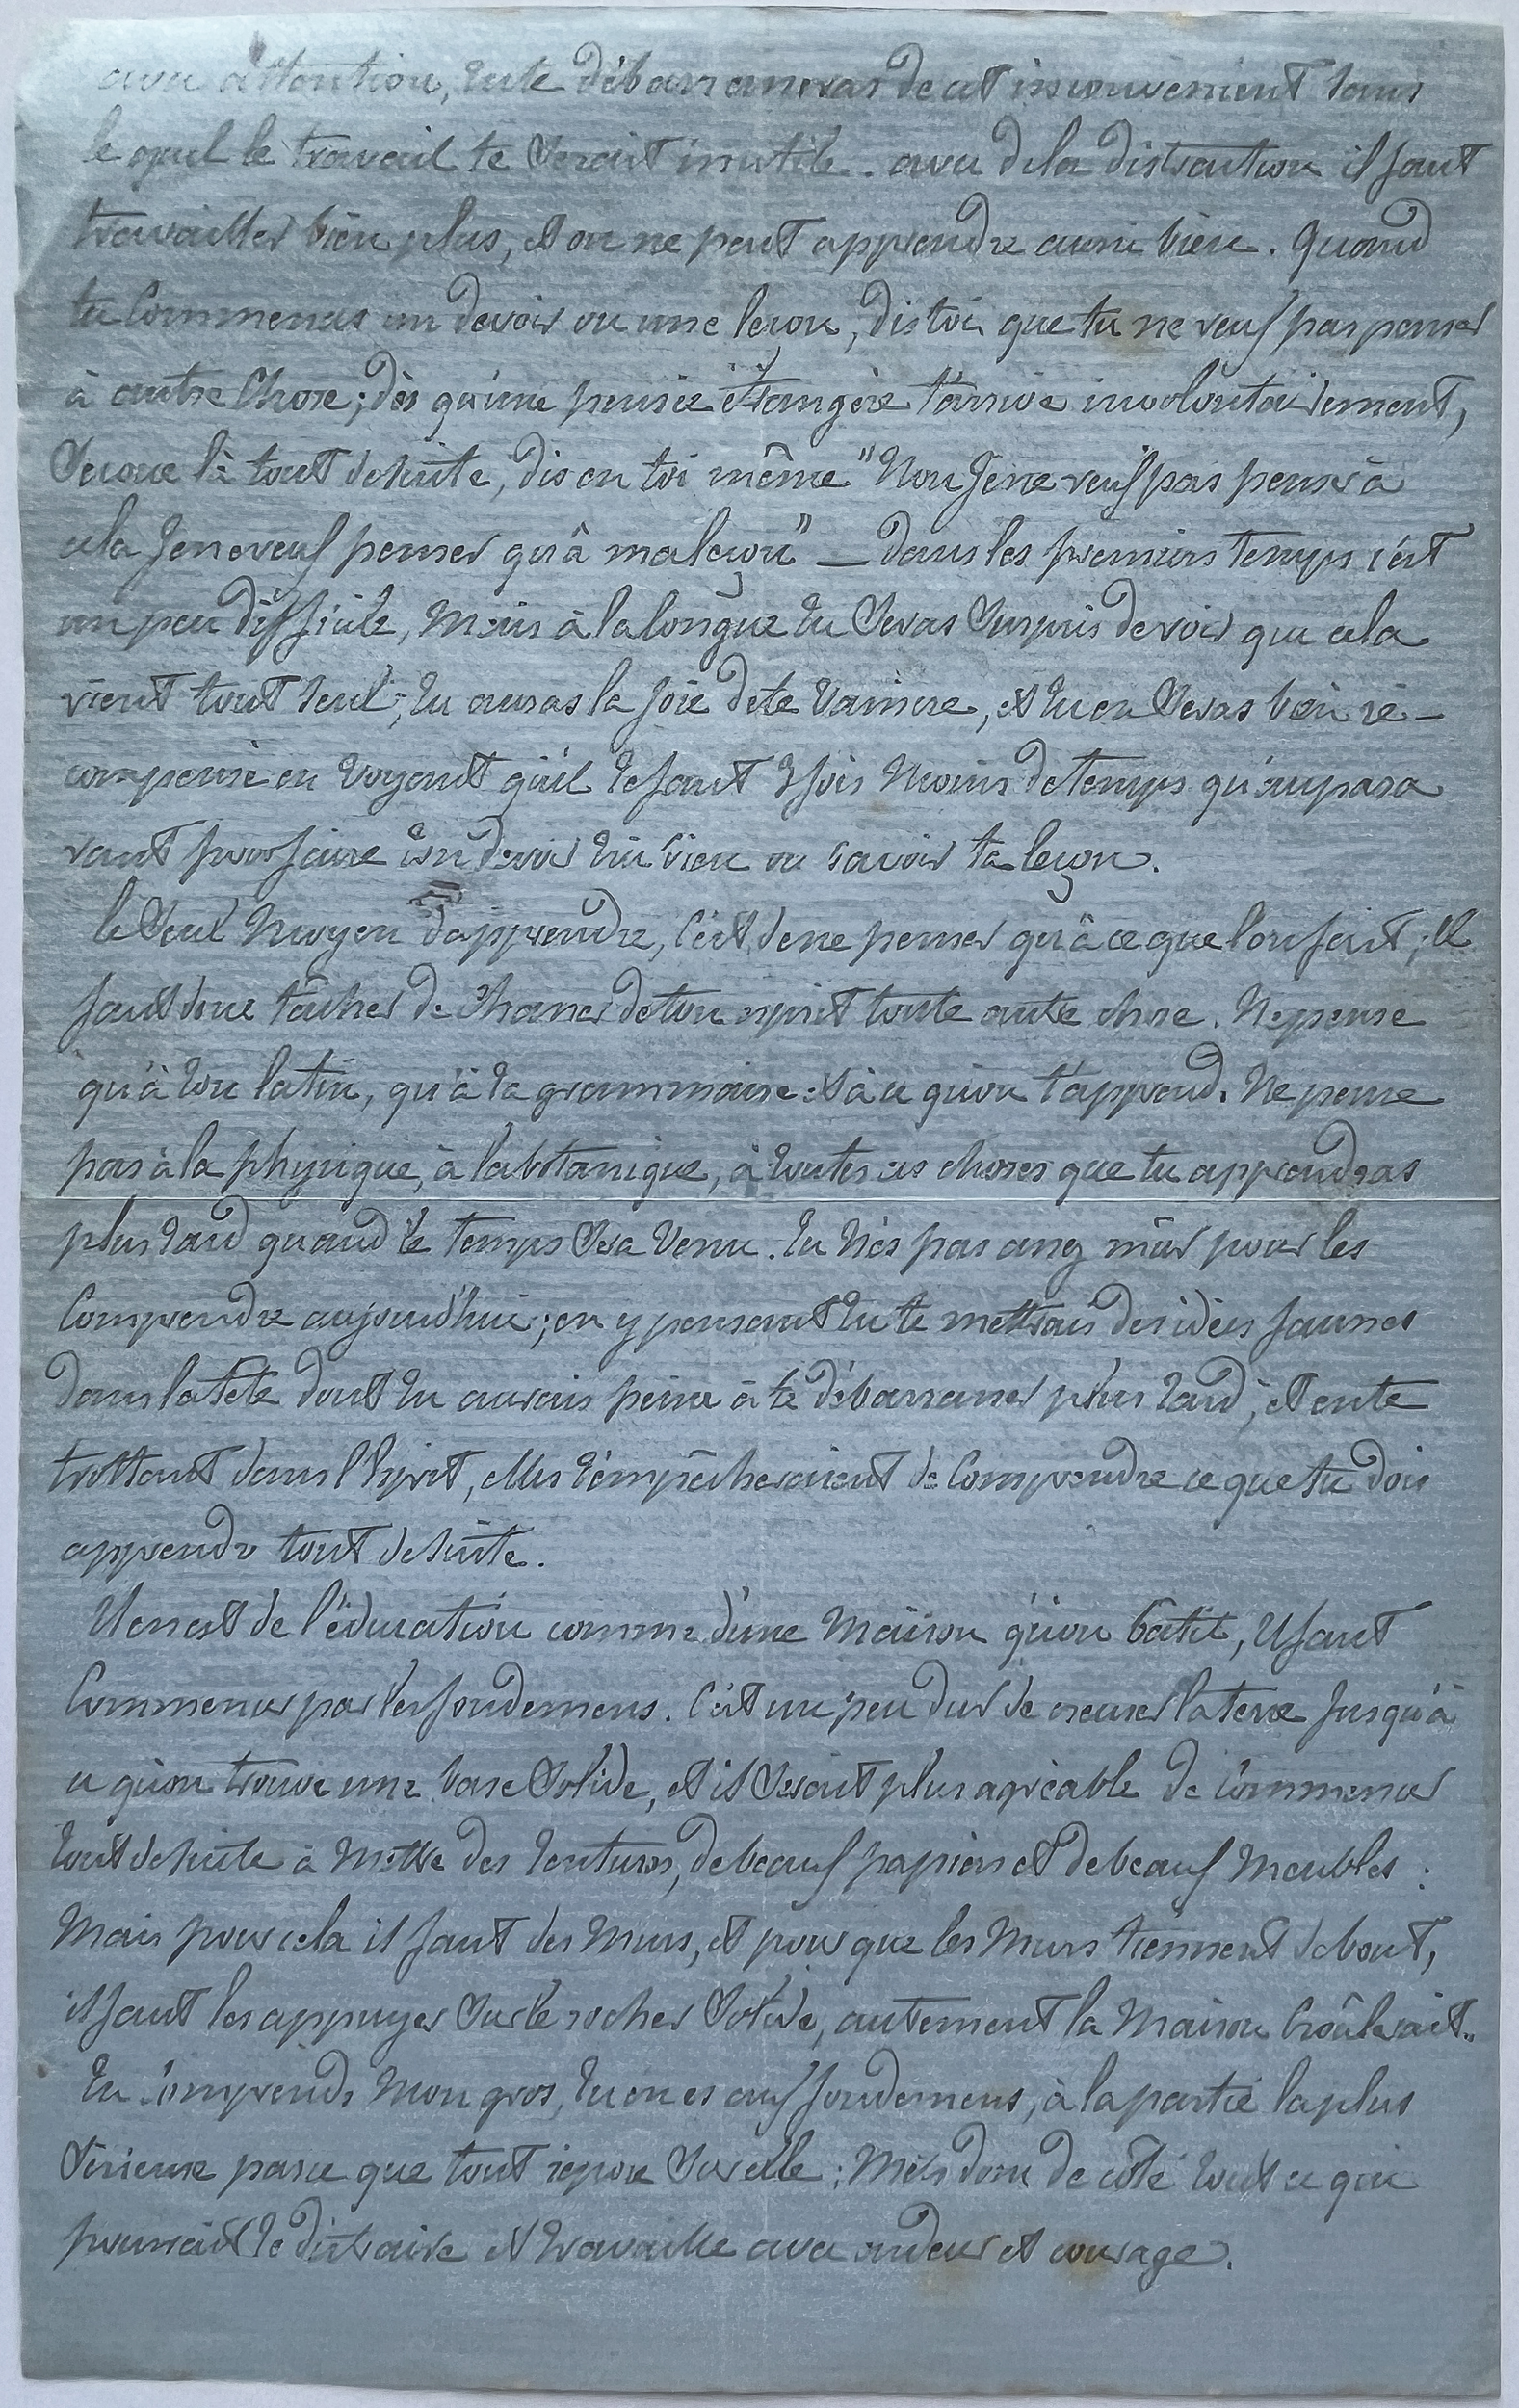 avec attention, tu te débarrasseras de cet inconvénient sans
le quel le travail te serait inutile. avec de la distraction il faut
travailler bien plus, et on ne peut apprendre aussi bien. Quand
tu commences un devoir ou une leçon, dis toi que tu ne veux pas penser
à autre chose; dès qu'une pensée étrangère t'arrive involontairement,
secoue là tout de suite, dis en toi même "Non Je ne veux pas penser à
cela Je ne veux penser qu'à ma leçon" — dans les premiers temps c'est
un peu difficile, mais à la longue tu seras surpris de voir que cela
vient tout seul; tu auras la joie de te vaincre, et tu en seras bien ré-
compensé en voyant qu'il te faut 3 fois moins de temps qu'aupara
vant pour faire ton devoir très bien ou savoir ta leçon.
le seul moyen d'apprendre, c'est de ne penser qu'à ce que l'on fait; il
faut donc tâcher de chasser de ton esprit toute autre chose. Ne pense
qu'à ton latin, qu'à ta grammaire et à ce qu'on t'apprend. Ne pense
pas à la physique, à la botanique, à toutes ces choses que tu apprendras
plus tard quand le temps sera venu. tu n'es pas assez mûr pour les
comprendre aujourd'hui; en y pensant tu te mettrais des idées fausses
dans la tête dont tu aurais peine à te débarrasser plus tard; et en te
trottant dans l'esprit, elles t'empêcheraient de comprendre ce que tu dois
apprendre tout de suite.
Il en est de l'éducation comme d'une maison qu'on bâtit, Il faut
commencer par les fondemens. C'est un peu dur de creuser la terre jusqu'à
ce qu'on trouve une base solide, et il serait plus agréable de commencer
tout de suite à mettre des tentures, de beaux papiers et de beaux meubles:
Mais pour cela il faut des murs, et pour que les murs tiennent debout,
il faut les appuyer sur le rocher solide, autement la maison croûlerait..
tu comprends mon gros, tu en es aux fondemens, à la partie la plus
sérieuse parce que tout repose sur elle; Mets donc de côté tout ce qui
pourrait te distraire et travaille avec ardeur et courage.